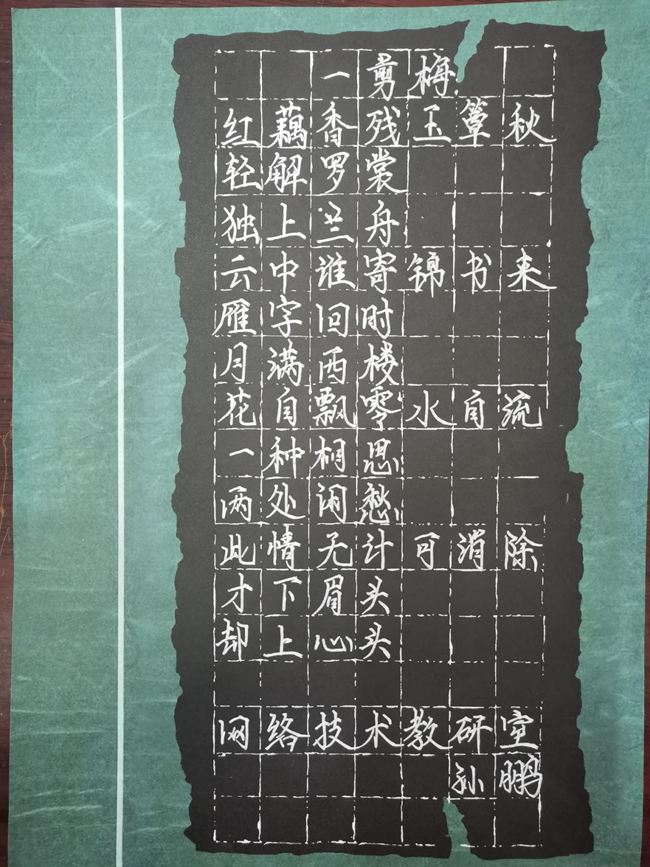 一剪梅
红藕香残玉簟秋
轻解罗裳
独上兰舟
云中谁寄锦书来
雁字回时
月满西楼
花自飘零水自流
一种相思
两处闲愁
此情无计可消除
才下眉头
却上心头
网络技术教研室
孙鹏